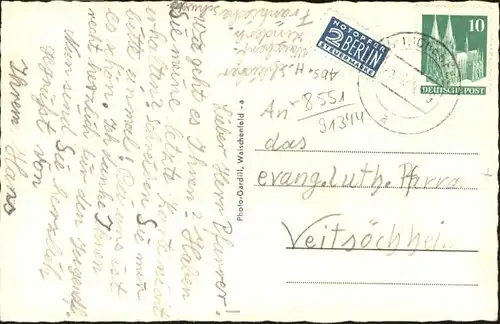 Lieber Herr Pfarrer.
Wie geht es Ihnen? Haben
Sie meine letzte Karte nicht
erhalten? Schreiben Sie mir
bitte einmal. Bei uns ist
es schön. Ich danke Ihnen
recht herzlich für den
Nun sind Sie herzlich
gegrüßt von
Ihrem Hans
Photo-Gardill, Waischenfeld -a
Abs. H.
NOTOPFER
2 BERLIN
STEUERMARKE
10
DEUTSCHE POST
8551
91344
An
das
evang. luth. Pfarra
Veitshöchhei